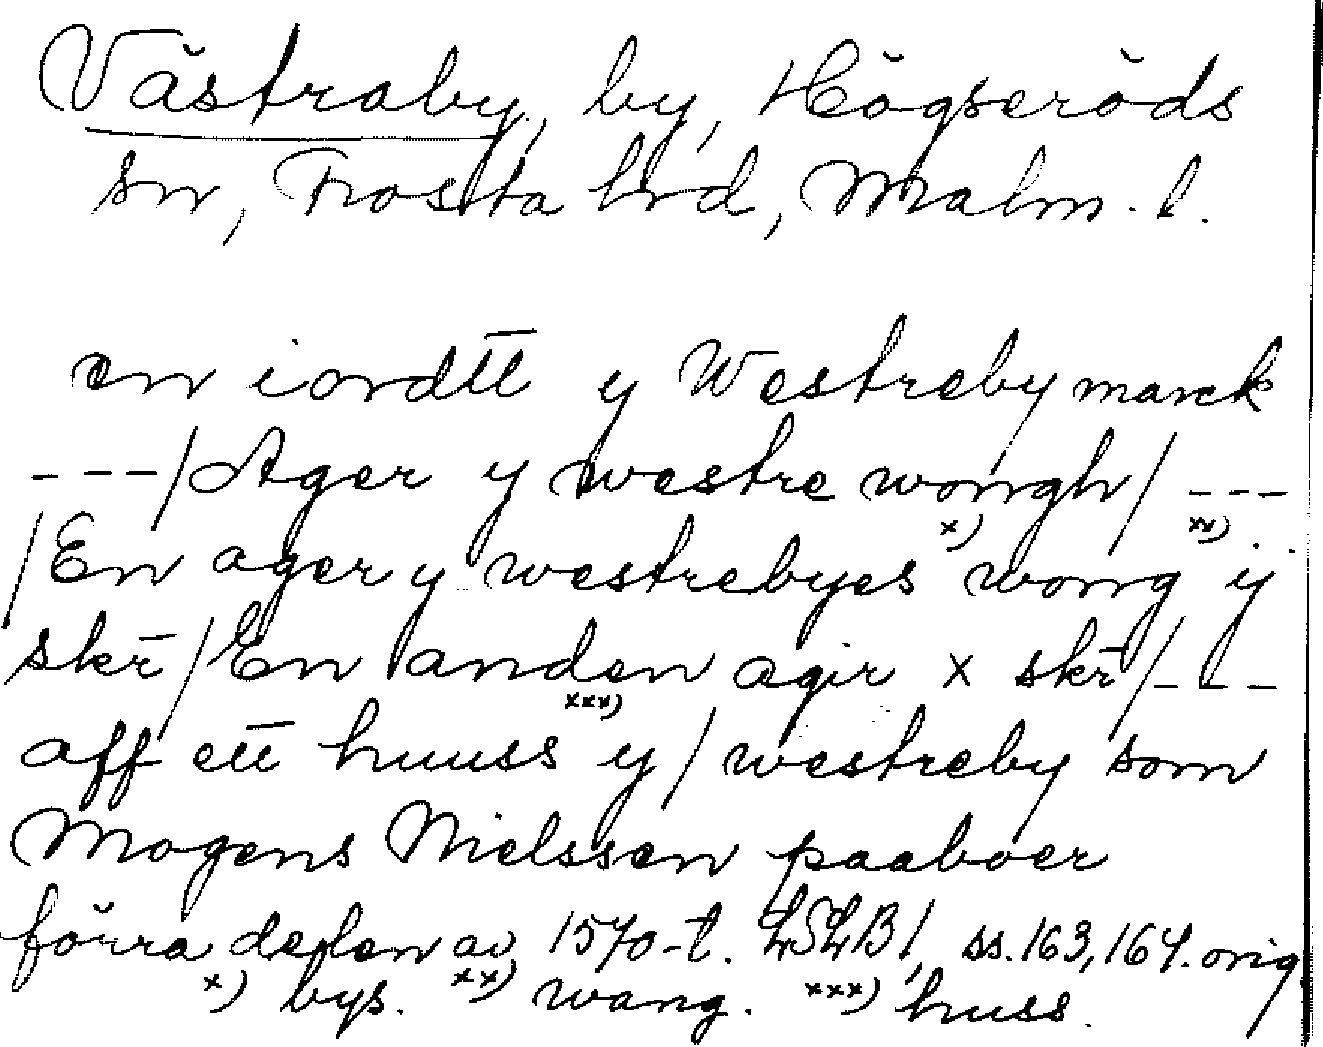 Västraby, by, Högseröds
sn, Frosta hrd, Malm. l.
en iordtt̄ y Westreby marck
---/Ager y westre wongh/ ---
/En ager y westrebyes x) wong xx) y
skr̄/En anden agir x skr̄/---
aff ett̄ huuss xxx) y/westreby som
Mogens Nielssen paaboer
förra delen av 1570-t. LSLB1, ss. 163, 164. orig
x) bys. xx) wang. xxx) huss.